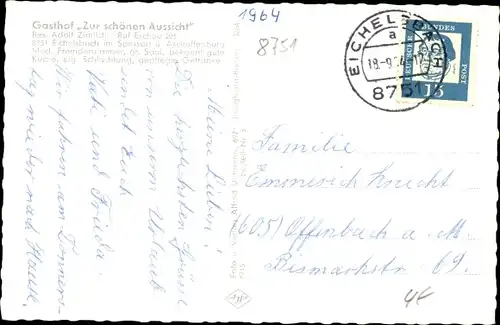 Gasthof „Zur schönen Aussicht"
Bes. Adolf Zimlich Ruf Eschau 251
8751 Eichelsbach im Spessart ü. Aschaffenburg
Mod. Fremdenzimmer, gr. Saal, bekannt gute
Küche, eig. Schlachtung, gepflegte Getränke
1964
8751
EICHELSBACH
a
18.-9.64-17
8751
DEUTSCHE BUNDESPOST
15
Meine Lieben!
Die herzlichsten Grüsse
von unserm Urlaub
sendet Euch
Vati und Frieda.
Wir fahren am Donners-
tag wieder nach Hause.
Familie
Emmerich Knecht
(605) Offenbach a. M.
Bismarckstr. 69.